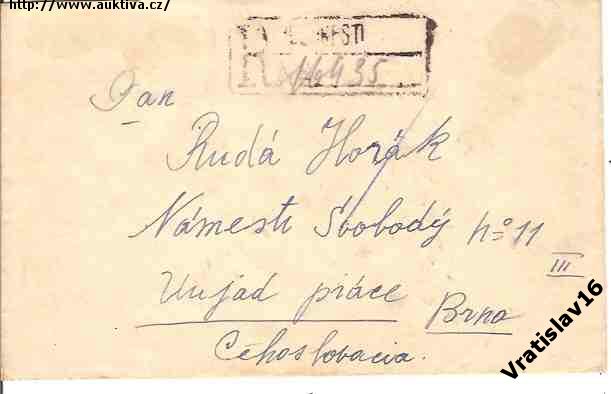 http://www.auktiva.cz/
R BUCURESTI
16435
Pan
Rudá Horák
Námesti Svobodý No 11
III
Uujad práce Brno
Cehoslovacia.
Vratislav16